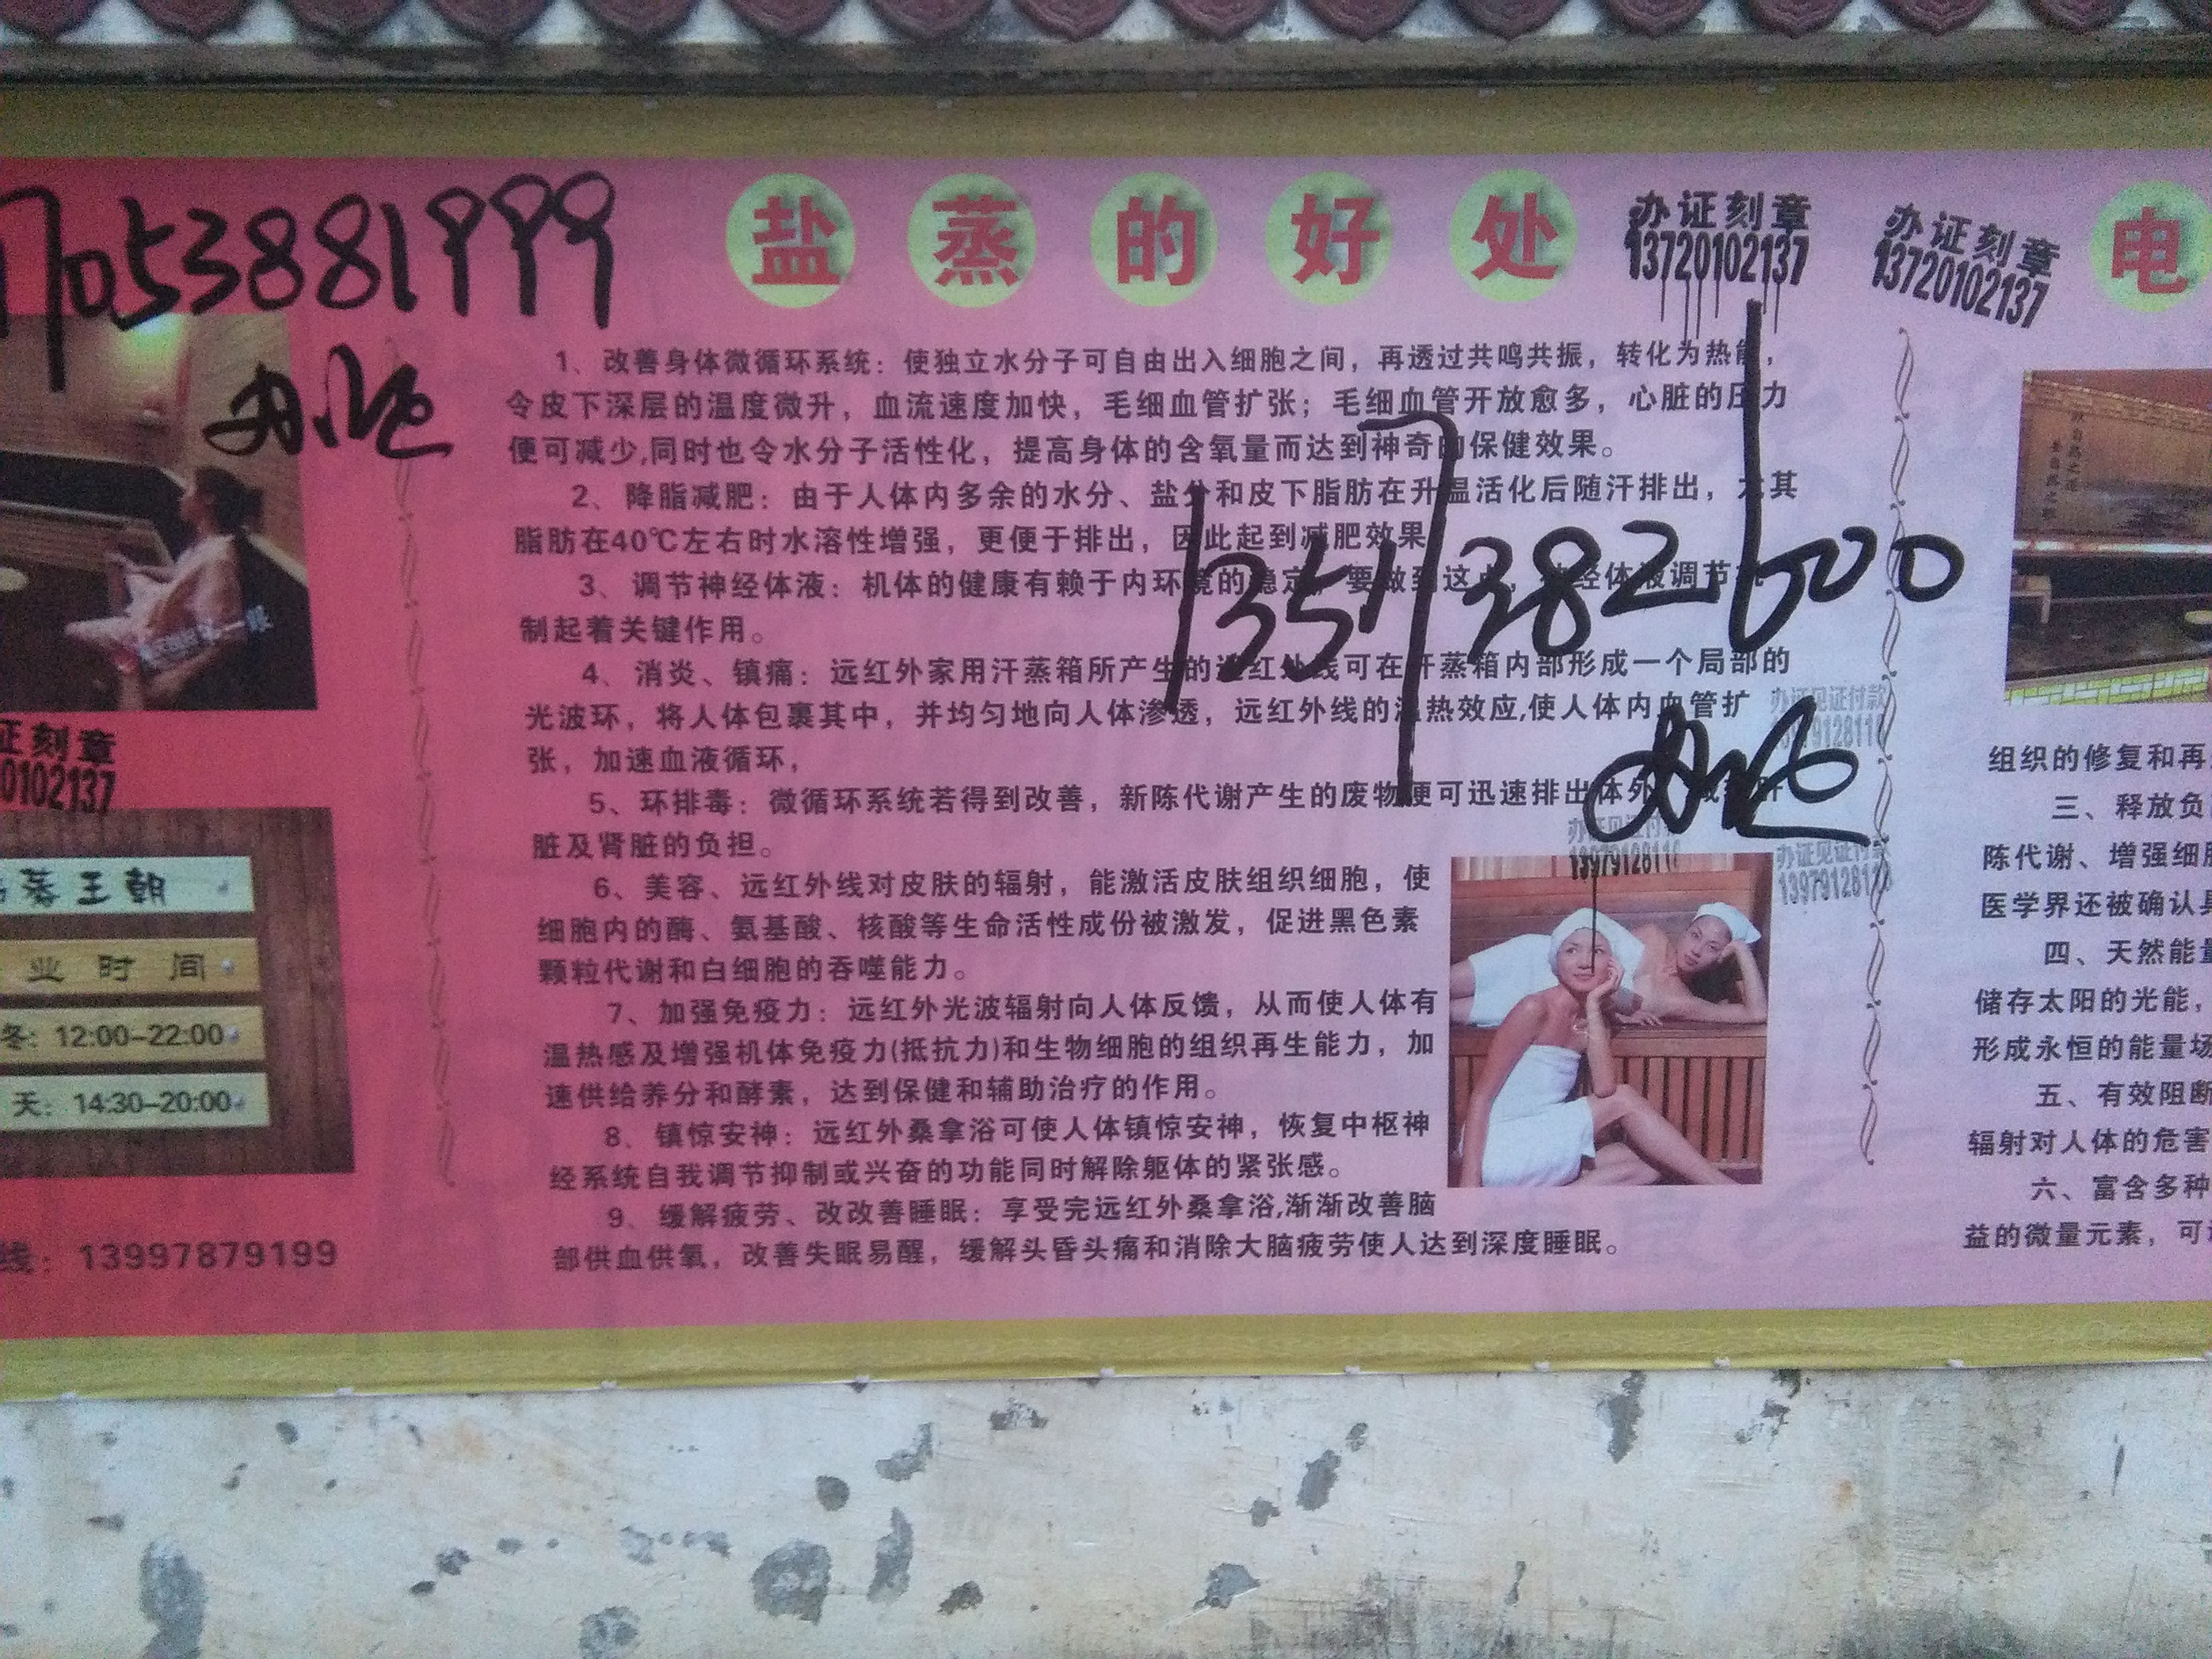 7053881999
办证
证刻章
0102137
蒸王朝
业时间
冬：12:00-22:00
天：14:30-20:00
线：13997879199
盐蒸的好处
办证刻章
13720102137
办证刻章
13720102137
1、改善身体微循环系统：使独立水分子可自由出入细胞之间，再透过共鸣共振，转化为热能，
令皮下深层的温度微升，血流速度加快，毛细血管扩张；毛细血管开放愈多，心脏的压力
便可减少,同时也令水分子活性化，提高身体的含氧量而达到神奇的保健效果。
2、降脂减肥：由于人体内多余的水分、盐分和皮下脂肪在升温活化后随汗排出，尤其
脂肪在40℃左右时水溶性增强，更便于排出，因此起到减肥效果
3、调节神经体液：机体的健康有赖于内环境的稳定，要做到这点，经体液调节
制起着关键作用。
4、消炎、镇痛：远红外家用汗蒸箱所产生的远红外线可在汗蒸箱内部形成一个局部的
光波环，将人体包裹其中，并均匀地向人体渗透，远红外线的温热效应,使人体内血管扩
张，加速血液循环，
5、环排毒：微循环系统若得到改善，新陈代谢产生的废物便可迅速排出体外
脏及肾脏的负担。
6、美容、远红外线对皮肤的辐射，能激活皮肤组织细胞，使
细胞内的酶、氨基酸、核酸等生命活性成份被激发，促进黑色素
颗粒代谢和白细胞的吞噬能力。
7、加强免疫力：远红外光波辐射向人体反馈，从而使人体有
温热感及增强机体免疫力(抵抗力)和生物细胞的组织再生能力，加
速供给养分和酵素，达到保健和辅助治疗的作用。
8、镇惊安神：远红外桑拿浴可使人体镇惊安神，恢复中枢神
经系统自我调节抑制或兴奋的功能同时解除躯体的紧张感。
9、缓解疲劳、改改善睡眠：享受完远红外桑拿浴,渐渐改善脑
部供血供氧，改善失眠易醒，缓解头昏头痛和消除大脑疲劳使人达到深度睡眠。
13517382600
办证
办证见证付款
1397912811
办证见证付
1397912811
办证见证付款
1397912811
电
组织的修复和再
三、释放负
陈代谢、增强细胞
医学界还被确认具
四、天然能量
储存太阳的光能，
形成永恒的能量场
五、有效阻断
辐射对人体的危害
六、富含多种
益的微量元素，可